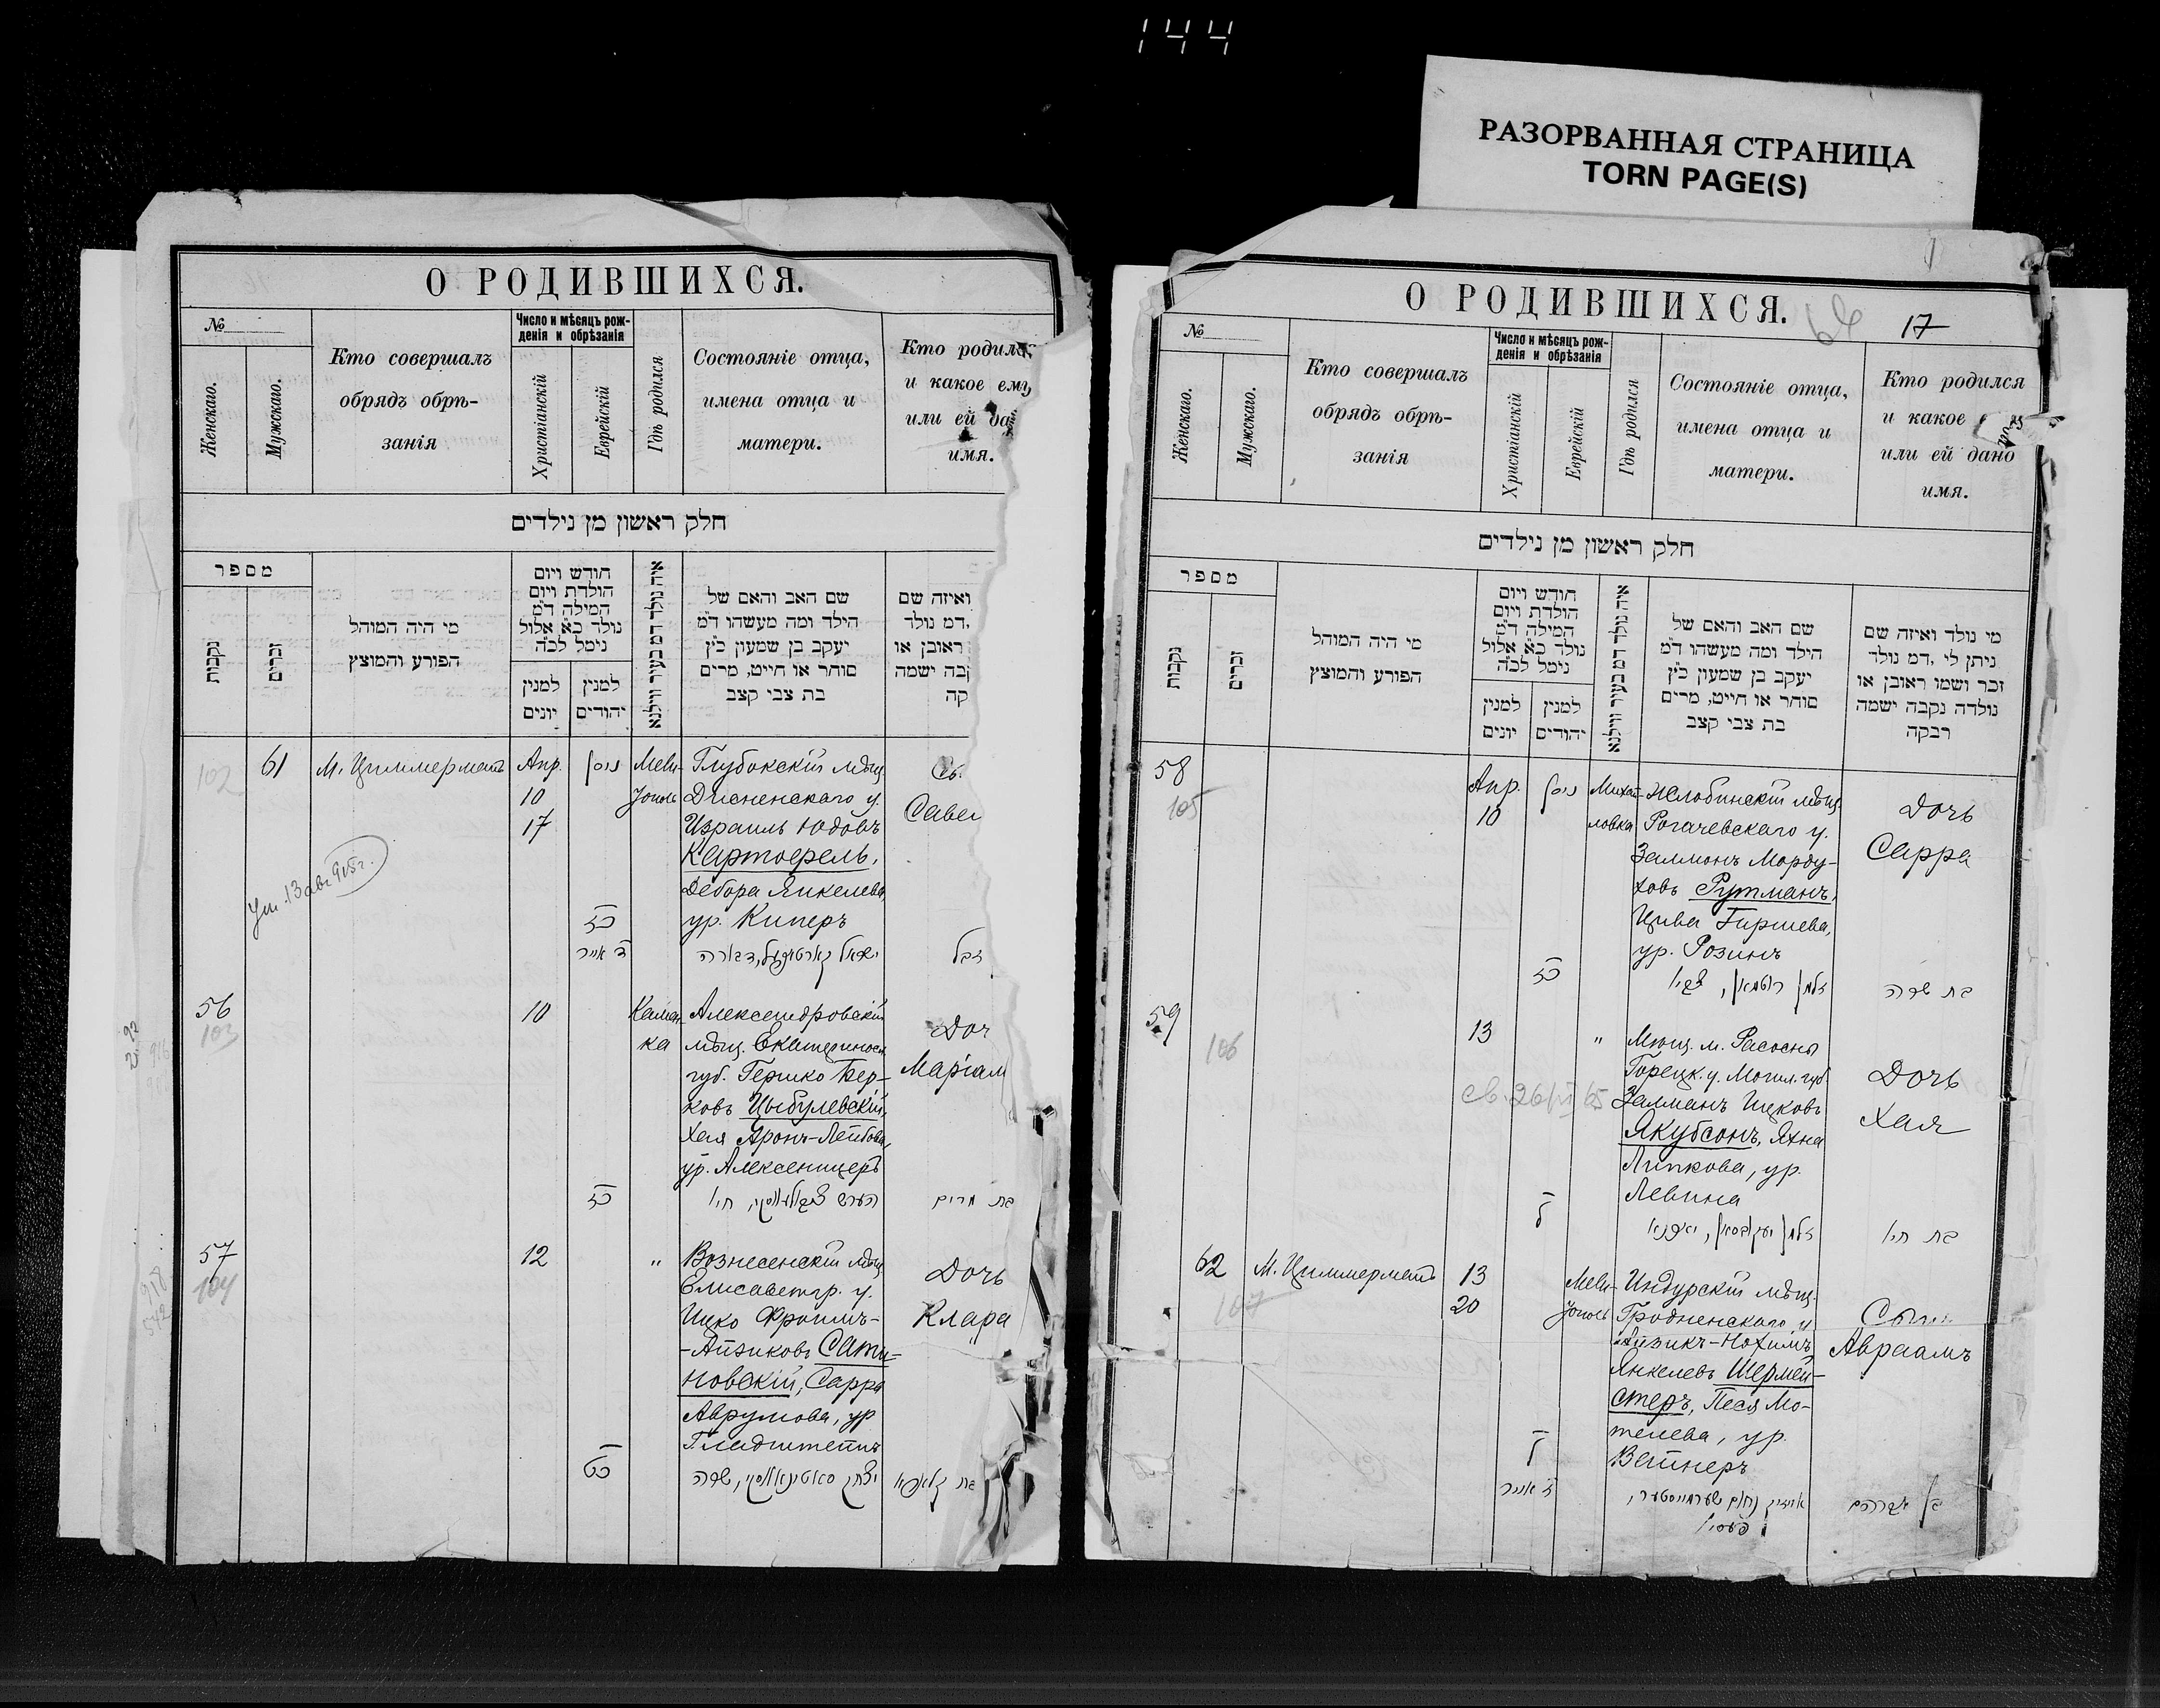 144
РАЗОРВАННАЯ СТРАНИЦА
TORN PAGE(S)
О РОДИВШИХСЯ.
№
Женскаго.
Мужскаго.
Кто совершалъ
обрядъ обрѣ-
занія
Число и мѣсяцъ рож-
денія и обрѣзанія
Христіанскій
Еврейскій
Гдѣ родился
Состояніе отца,
имена отца и
матери.
Кто родился
и какое ему
или ей да
имя.
חלק ראשון מן נילדים
מספר
נקבות
זכרים
מי היה המוהל
הפורע והמוצץ
חודש ויום
הולדת ויום
המילה ד״מ
נולד כ״א אלול
נימל לכ״ה
למנין
יונים
למנין
יהודים
איה נולד דמ בעיר ווילנא
שם האב והאם של
הילד ומה מעשהו ד״מ
יעקב בן שמעון כ״ץ
סוחר או חייט, מרים
בת צבי קצב
ואיזה שם
דמ נולד,
ראובן או
בה ישמה
קה
102
61
М. Циммерманъ
Апр.
10
17
ניסן
כד
ד אייר
Мели-
тополь
Глубокскій мѣщ.
Дисненскаго у.
Израиль Юдовъ
Картофель,
Дебора Янкелева,
ур. Киперъ
Савел
Ум. 13 авг 905 г.
56
103
10
כד
Камен-
ка
Александровскій
мѣщ. Екатериносл.
губ. Гершко Бер-
ковъ Цыбулевскій,
Хая Аронъ-Лейбова,
ур. Алексеницеръ
Доч
Маріам
בת מרים
57
104
12
כט
"
Вознесенскій мѣщ.
Елисаветгр. у.
Ицко Фроимъ-
-Айзиковъ Сати-
новскій, Сарра
Аврумова, ур
Гладштейнъ
Дочь
Клара
О РОДИВШИХСЯ.
17
№
Женскаго.
Мужскаго.
Кто совершалъ
обрядъ обрѣ-
занія
Число и мѣсяцъ рож-
денія и обрѣзанія
Христіанскій
Еврейскій
Гдѣ родился
Состояніе отца,
имена отца и
матери.
Кто родился
и какое
или ей дано
имя.
חלק ראשון מן נילדים
מספר
נקבות
זכרים
מי היה המוהל
הפורע והמוצץ
חודש ויום
הולדת ויום
המילה ד״מ
נולד כ״א אלול
נימל לכ״ה
למנין
יונים
למנין
יהודים
איה נולד דמ בעיר ווילנא
שם האב והאם של
הילד ומה מעשהו ד״מ
יעקב בן שמעון כ״ץ
סוחר או חייט, מרים
בת צבי קצב
מי נולד ואיזה שם
ניתן לי ,דמ נולד
זכר ושמו ראובן או
נולדה נקבה ישמה
רבקה
58
105
Апр.
10
ניסן
כד
Михай-
ловка
Жлобинскій мѣщ.
Рогачевскаго у.
Залманъ Морду-
ховъ Рутманъ,
Цива Гиршева,
ур. Розинъ
Дочь
Сарра
בת שרה
59
106
13
"
Мѣщ. м. Расосны
Горецк. у. Могил. губ.
Залманъ Ицковъ
Якубсонъ, Яхна
Липкова, ур.
Левина
Дочь
Хая
בת חיה
62
107
М. Циммерманъ
13
20
Мели-
тополь
Индурскій мѣщ.
Гродненскаго у.
Айзикъ-Нохимъ
Янкелевъ Шермей-
стеръ, Песя Мо-
телева, ур.
Вайнеръ
Сынъ
Авраамъ
בן אברהם